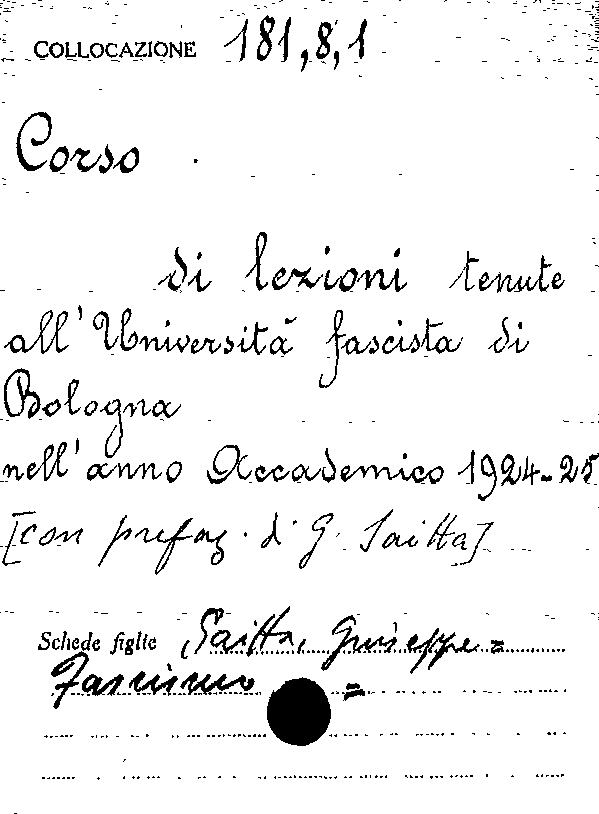 COLLOCAZIONE 181,8,1
Corso
di lezioni tenute
all'Università fascista di
Bologna
nell'anno Accademico 1924-25
[con prefaz. di G. Saitta]
Schede figlie Saitta, Giuseppe =
Fascismo =